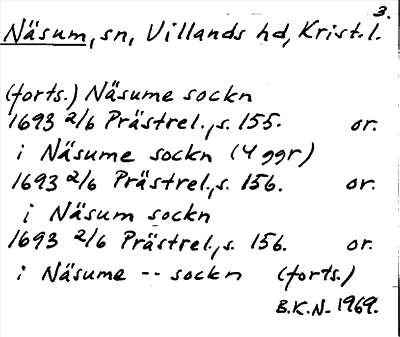 3.
Näsum, sn, Villands hd, Krist. l.
(forts.) Näsume sockn
1693 2/6 Prästrel., s. 155. or.
i Näsume sockn (4 ggr)
1693 2/6 Prästrel., s. 156. or.
i Näsum sockn
1693 2/6 Prästrel., s. 156. or.
i Näsume -- sockn (forts.)
B.K.N. 1969.